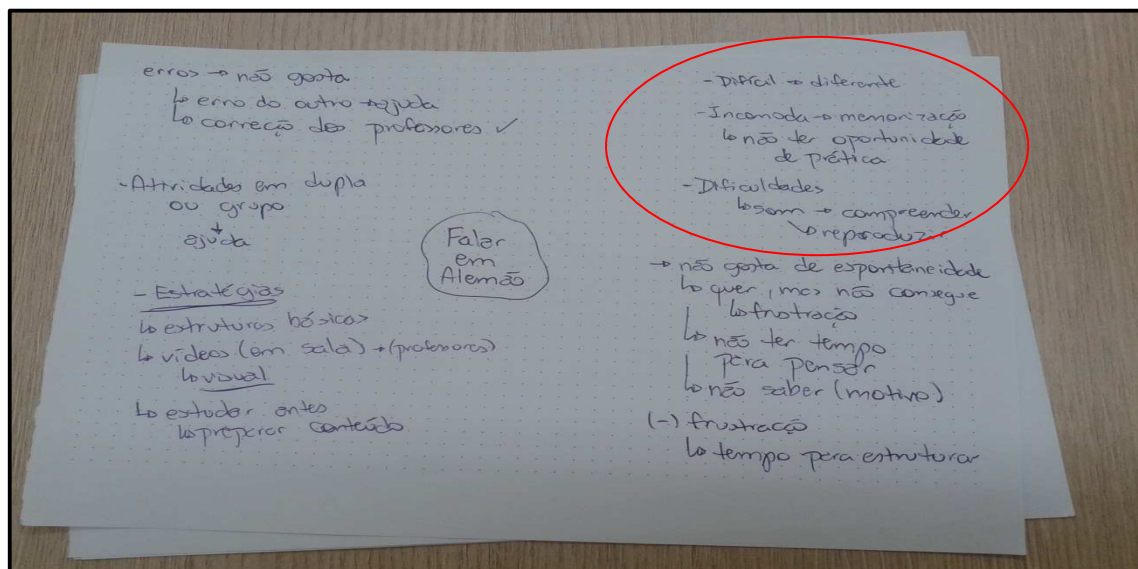 erros → não gosta
↳ erro do outro → ajuda
↳ correção dos professores ✓
- Atividades em dupla
ou grupo
↓
ajuda
- Estratégias
↳ estruturas básicas
↳ vídeos (em sala) → (professores)
↳ visual
↳ estudar antes
↳ preparar conteúdo
Falar
em
Alemão
- Difícil → diferente
- Incomoda → memorização
↳ não ter oportunidade
de prática
- Dificuldades
↳ som → compreender
↳ reproduzir
→ não gosta de espontaneidade
↳ quer, mas não consegue
↳ frustração
↳ não ter tempo
para pensar
↳ não saber (motivo)
(-) frustração
↳ tempo para estruturar